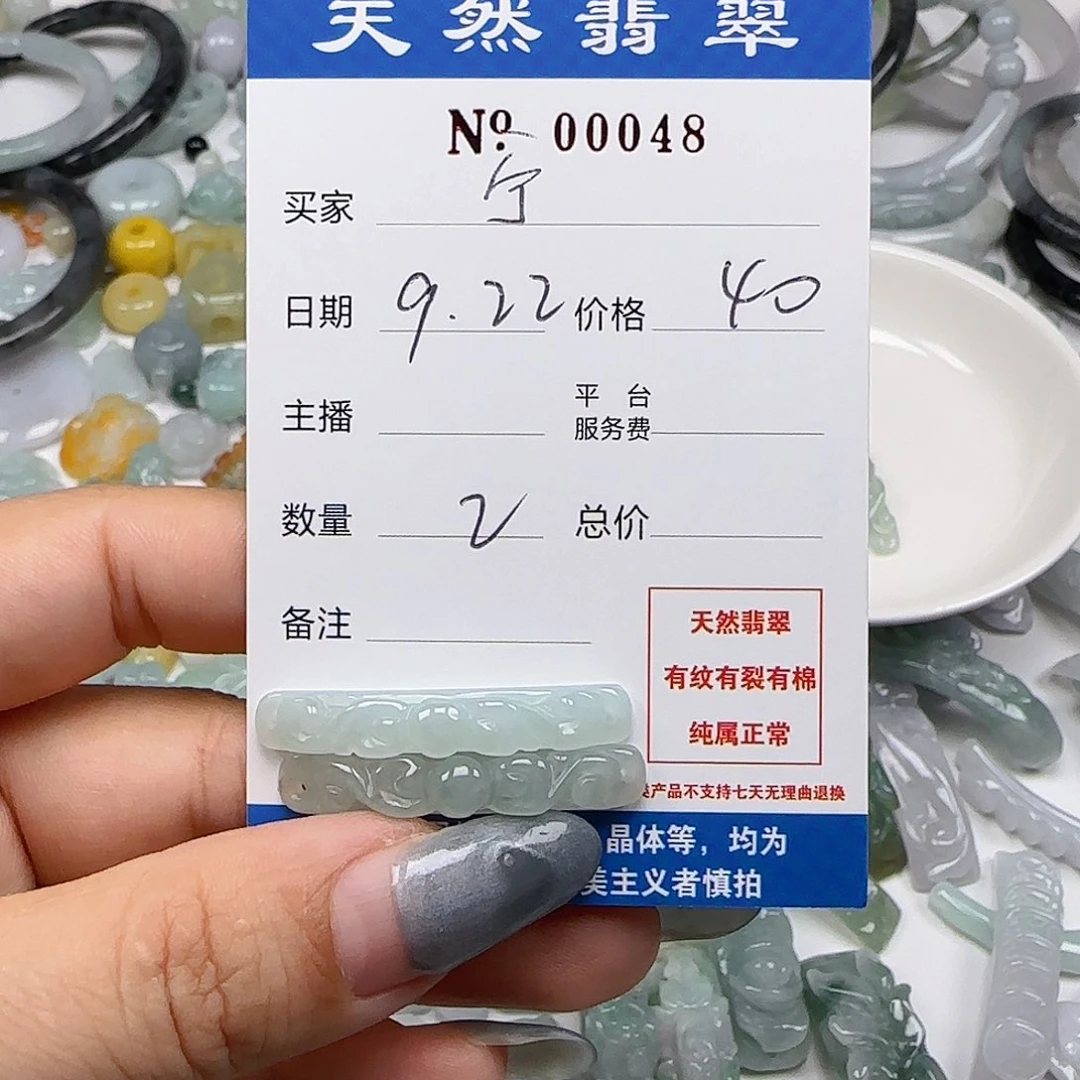 天然翡翠
No. 00048
买家 宁
日期 9.22 价格 40
主播 平台服务费
数量 2 总价
备注
天然翡翠
有纹有裂有棉
纯属正常
产品不支持七天无理由退换
晶体等，均为
美主义者慎拍